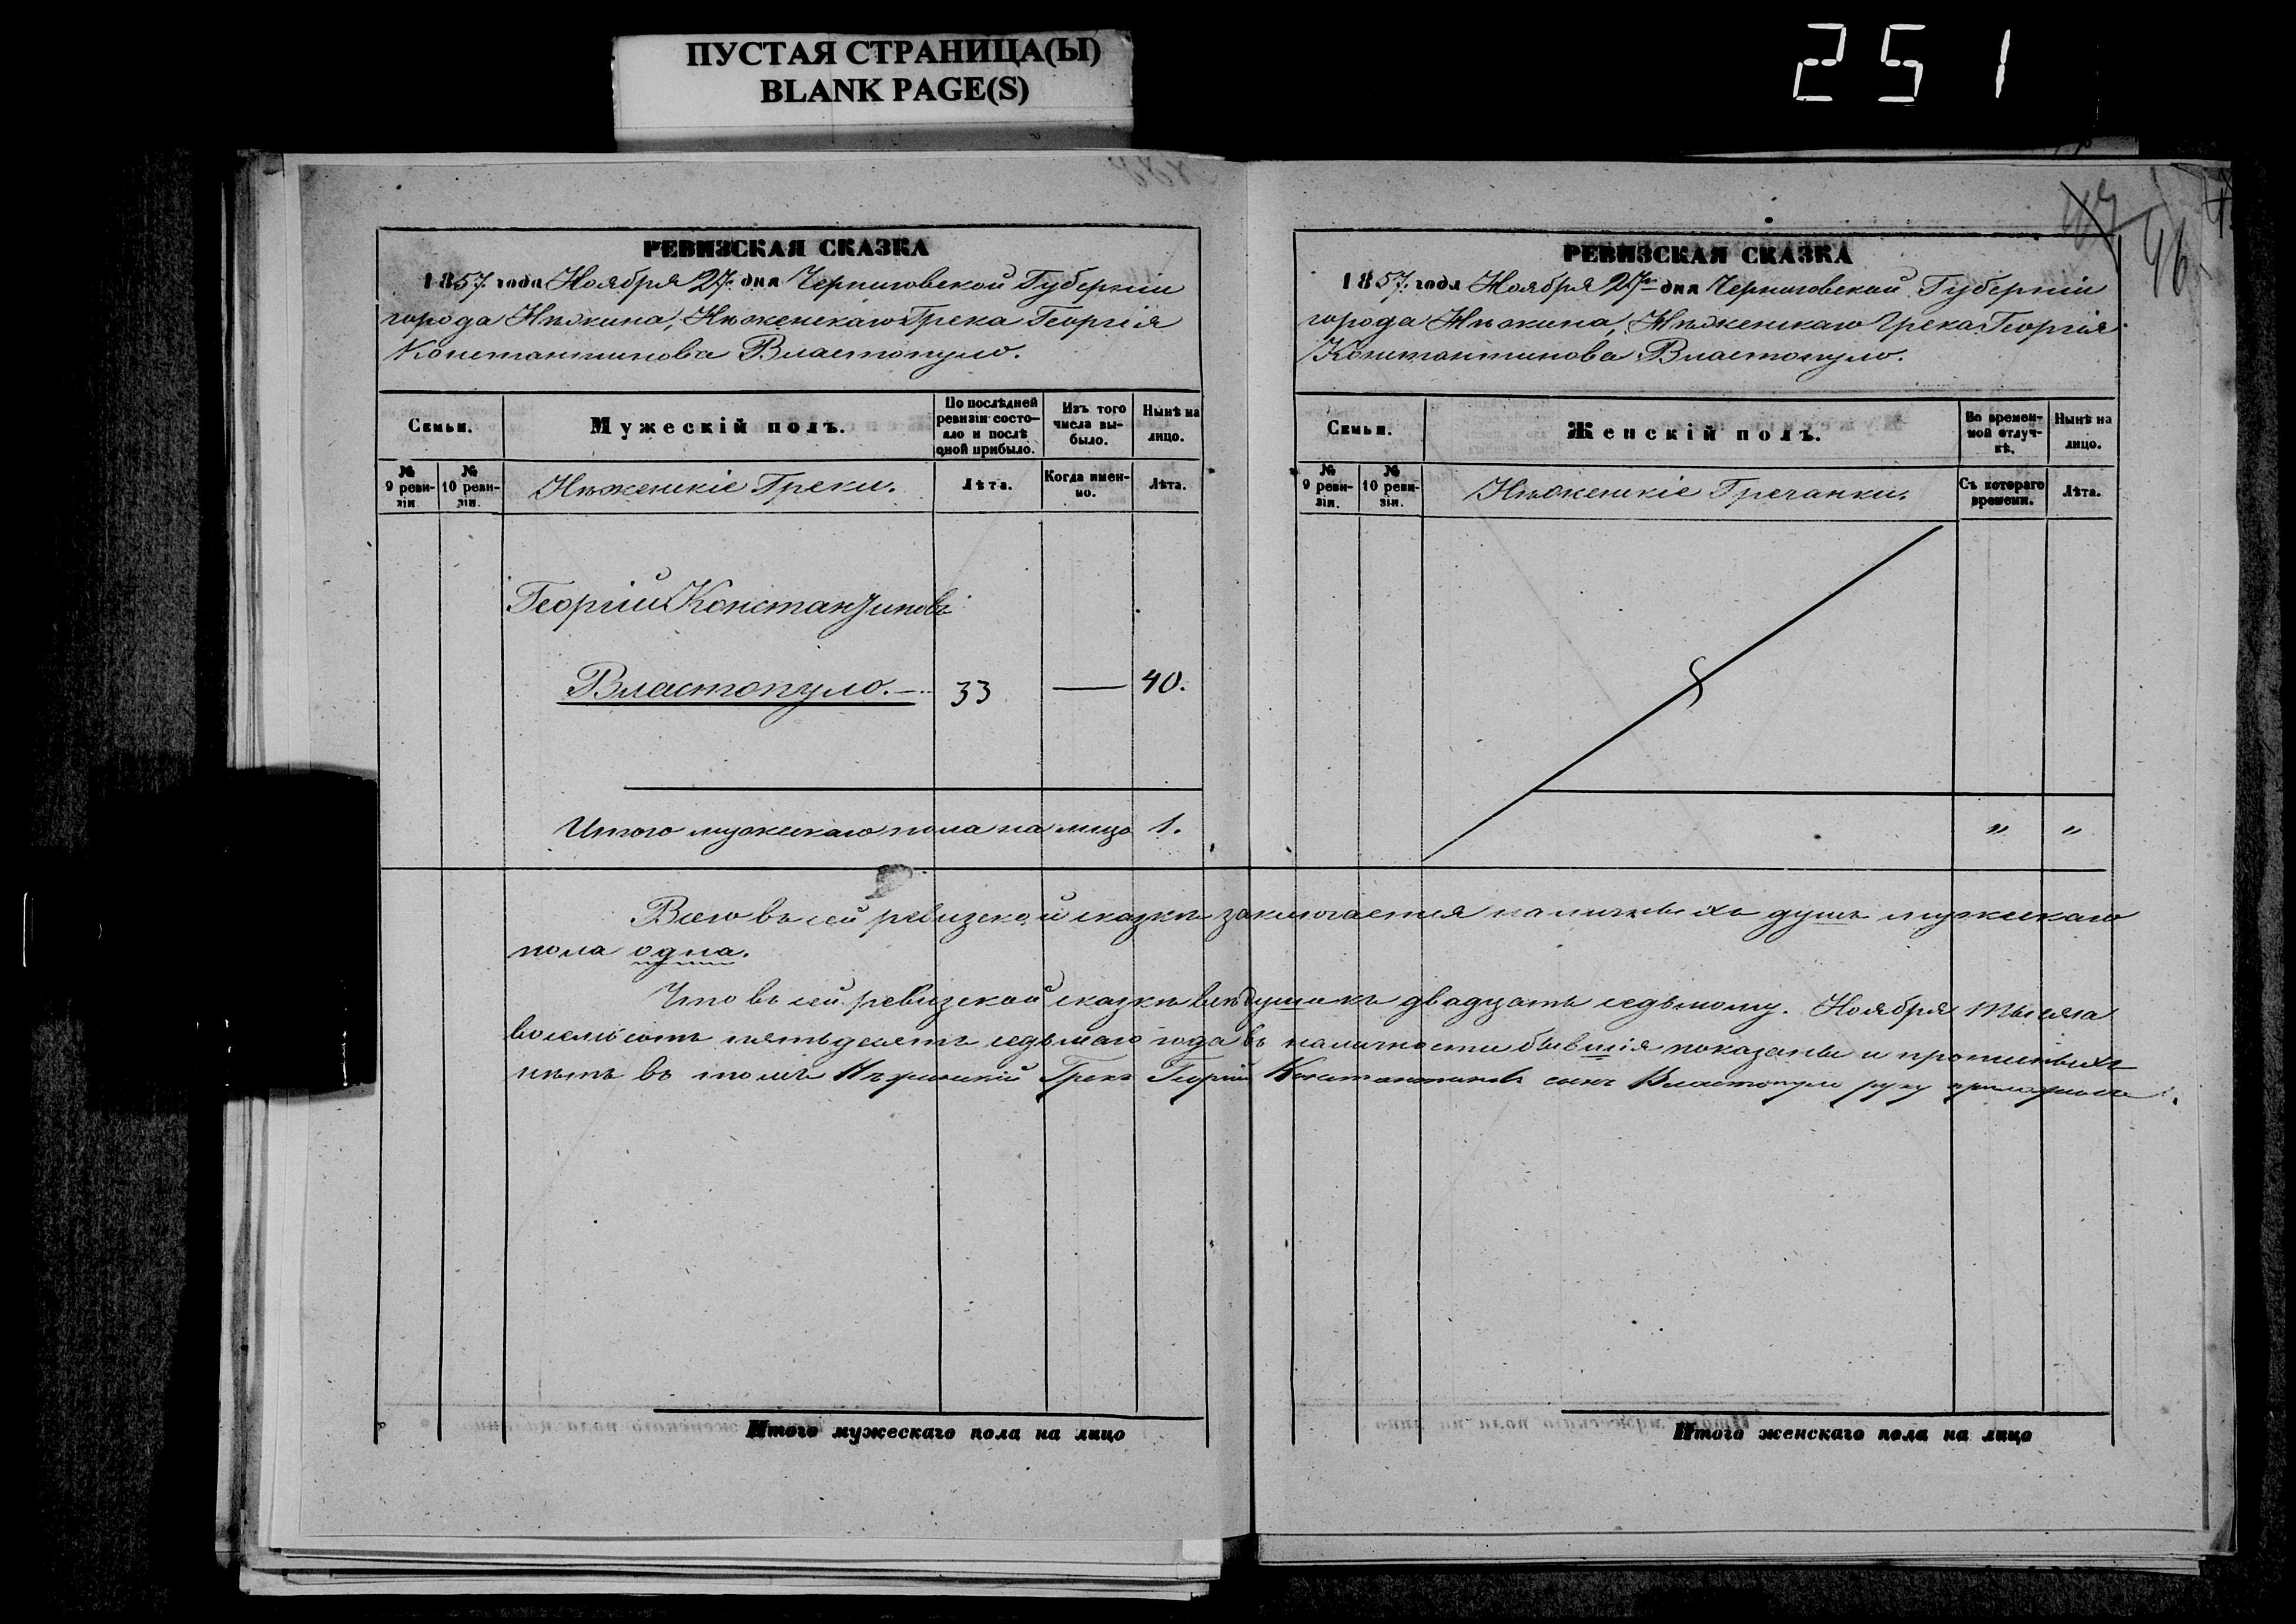 ПУСТАЯ СТРАНИЦА(Ы)
BLANK PAGE(S)
251
РЕВИЗСКАЯ СКАЗКА
1857. года Ноября 27. дня Черниговской Губерніи
города Нѣжина, Нѣженскаго Грека Георгія
Константинова Властопуло.
Семьи.
Мужескій полъ.
По послѣдней
ревизіи состо-
яло и послѣ
оной прибыло.
Изъ того
числа вы-
было.
Нынѣ на
лицо.
№
9 реви-
зіи.
№
10 реви-
зіи.
Нѣженскіе Греки.
Лѣта.
Когда имен-
но.
Лѣта.
Георгій Константиновъ
Властопуло. 33 — 40.
Итого мужескаго пола на лицо 1.
РЕВИЗСКАЯ СКАЗКА
1857. года Ноября 27 дня Черниговской Губерніи
города Нѣжина, Нѣженскаго Грека Георгія
Константинова Властопуло.
Семьи.
Женскій полъ.
Во времен-
ной отлуч-
кѣ.
Нынѣ на
лицо.
№
9 реви-
зіи.
№
10 реви-
зіи.
Нѣженскіе Гречанки.
Съ котораго
времени.
Лѣта.
" "
46
Всего въ сей ревизской сказкѣ заключается наличныхъ душъ мужескаго
пола одна.
Что въ сей ревизской сказкѣ всѣ души къ двадцать седьмому Ноября тысяча
восемьсотъ пятьдесятъ седьмаго года въ наличности бывшія показаны и прописныхъ
нѣтъ въ томъ Нѣжинскій Грекъ Георгій Константиновъ сынъ Властопуло руку приложилъ.
Итого мужескаго пола на лицо
Итого женскаго пола на лицо